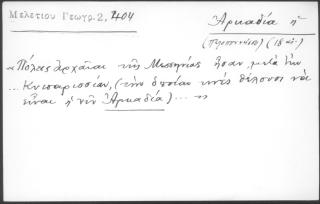 Μελετίου Γεωγρ.2, 404
Ἀρκαδία ἡ
(Πελοπόννησος) (18 αἰ.)
« Πόλεις ἀρχαῖαι τῆς Μεσσηνίας ἦσαν, μετὰ τὴν
... Κυπαρισσίαν, (τὴν ὁποίαν τινὲς θέλουσι νὰ
εἶναι ἡ νῦν Ἀρκαδία) ... »